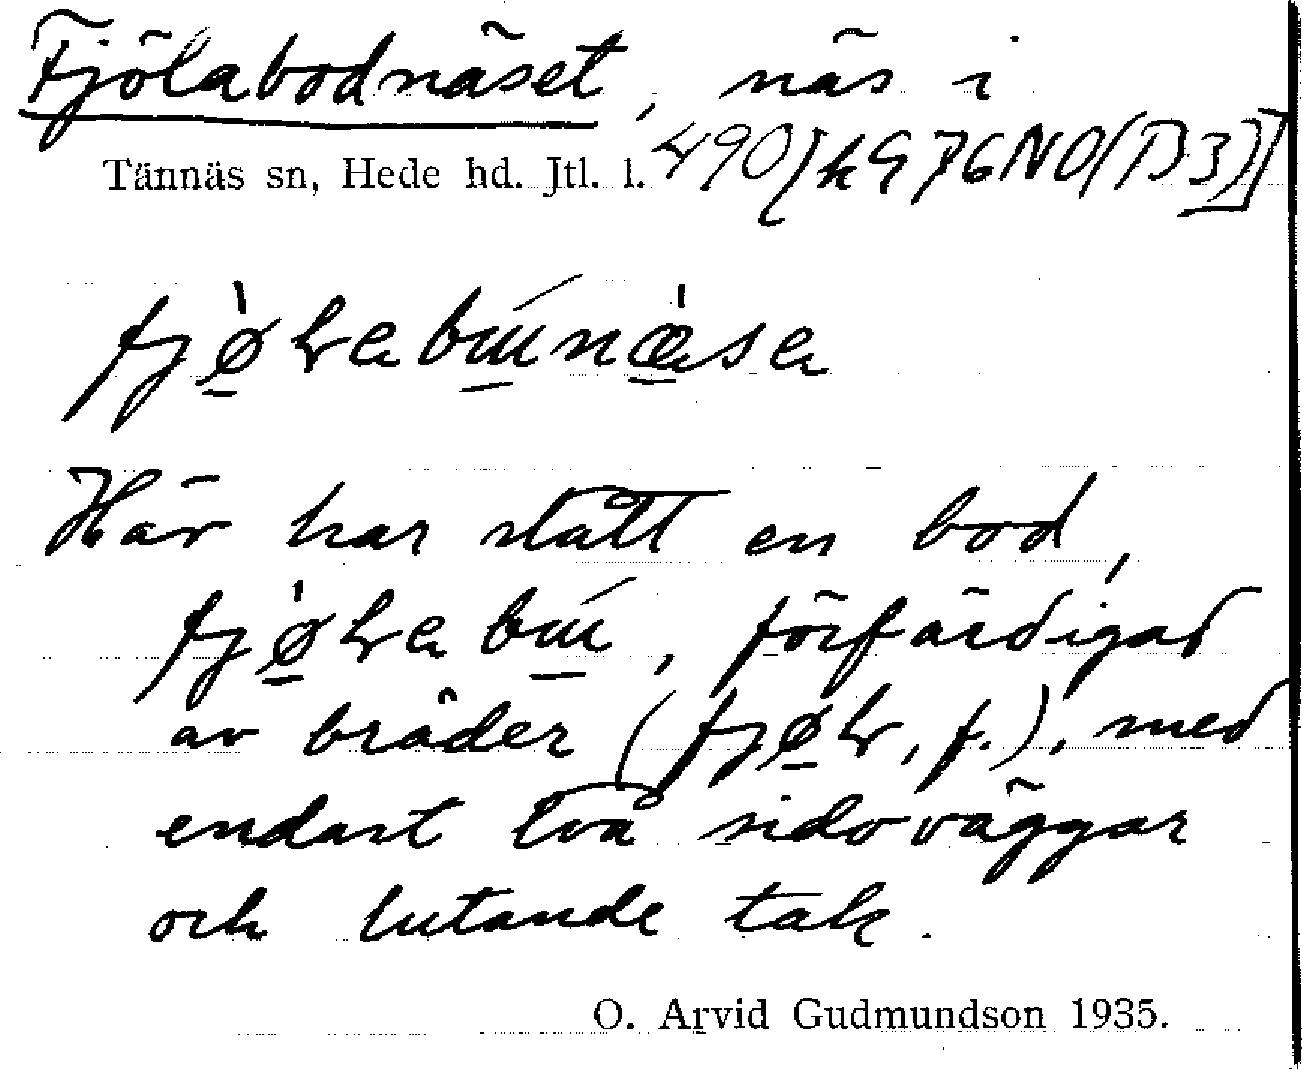 Fjölabodnäset, näs i
Tännäs sn, Hede hd. Jtl. l. 490[k976NO(B3)]
Här har stått en bod,
förfärdigad
av bräder (fjøɬ, f.), med
endast två sidoväggar
och lutande tak.
O. Arvid Gudmundson 1935.